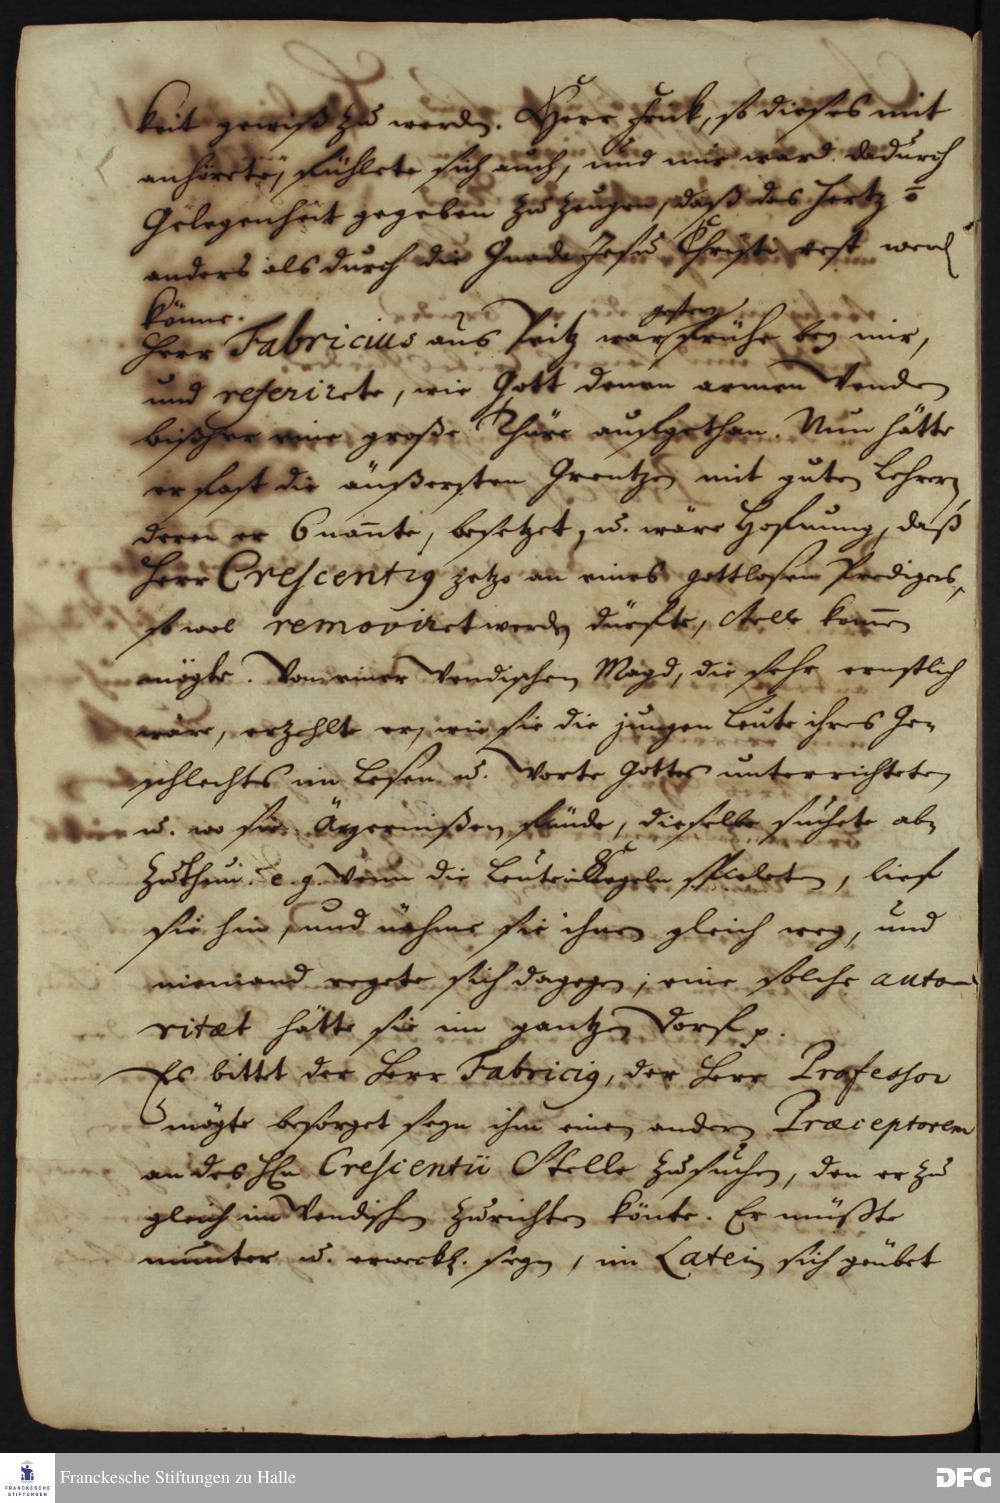 keit gewiß zu werden. Herr Frick, so dieses mit
anhörete, fühlete sich auch, und mir ward dadurch
Gelegenheit gegeben zu zeugen, daß das Hertz
anders als durch die Gnade Jesu Christi vest werd
könne.
gestern
Herr Fabricius aus Peitz war frühe bey mir,
und referirete, wie Gott denen armen Wenden
bißher eine große Thüre aufgethan. Nun hätte
er fast die äußersten Grentzen mit guten Lehrern,
deren er 6 nante, besetzet, u. wäre Hofnung, daß
Herr Crescentig jetzo an eines gottlosen Predigers,
so wol removiret werden dürfte, Stelle kommen
mögte. Von einer Wendischen Magd, die sehr ernstlich
wäre, erzehlte er, wie sie die jungen Leute ihres Ge-
schlechts im Lesen u. Worte Gottes unterrichtete,
u. wo sie Ärgernißen fünde, dieselbe suchete ab-
zuthun. e. g. Wenn die Leute Kegeln spieleten, lief
sie hin, und nähme sie ihnen gleich weg, und
niemand regete sich dagegen; eine solche auto-
ritæt hätte sie im gantzen Dorf p.
Es bittet der Herr Fabricig, der Herr Professor
mögte besorget seyn ihm einen andern Præceptorem
an des HEn Crescentii Stelle zu suchen, den er zu
gleich im Wendischen zurichten könte. Er müßte
munter u. erweckl. seyn, im Latein sich geübet
Franckesche Stiftungen zu Halle
FRANCKESCHE
STIFTUNGEN
DFG